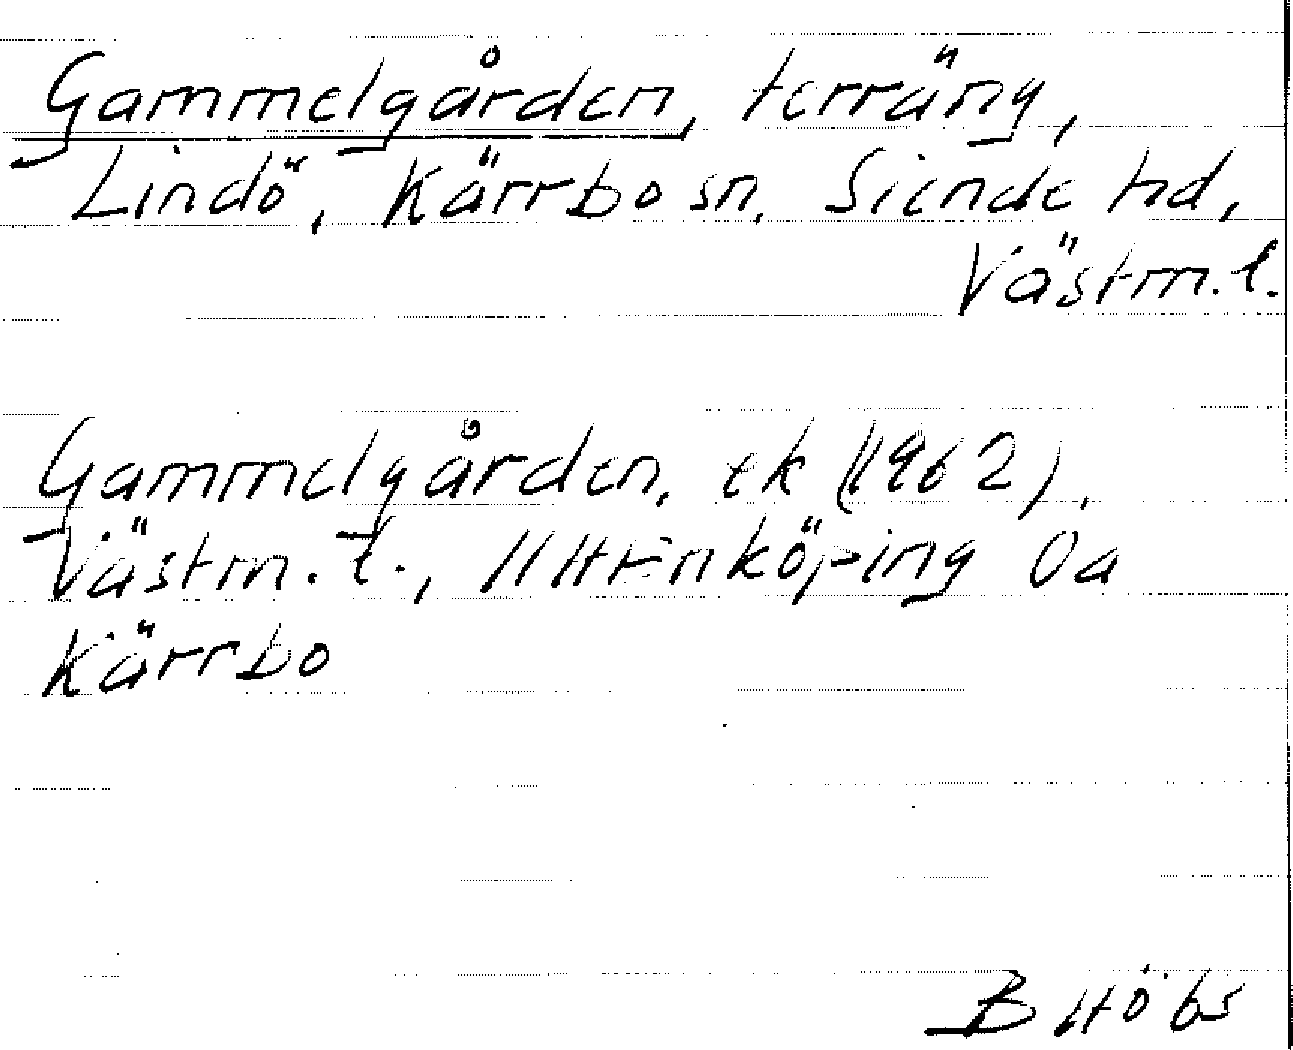 Gammelgården, terräng,
Lindö, Kärrbo sn, Siende hd,
Västm.l.
Gammelgården, ek (1962),
Västm.l., 11H Enköping 0a
Kärrbo